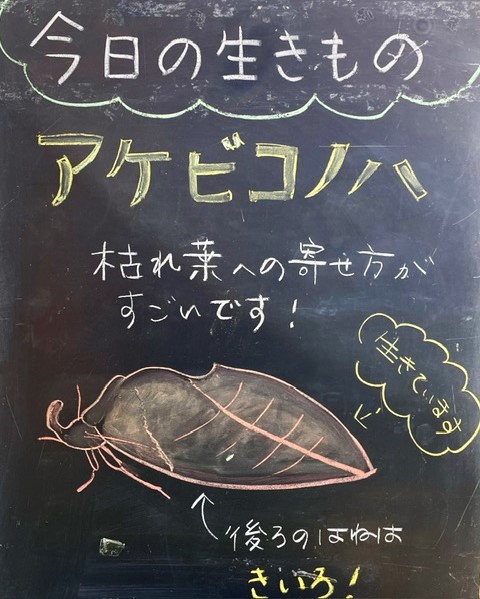 今日の生きもの
アケビコノハ
枯れ葉への寄せ方が
すごいです！
生きています
後ろのはねは
きいろ！